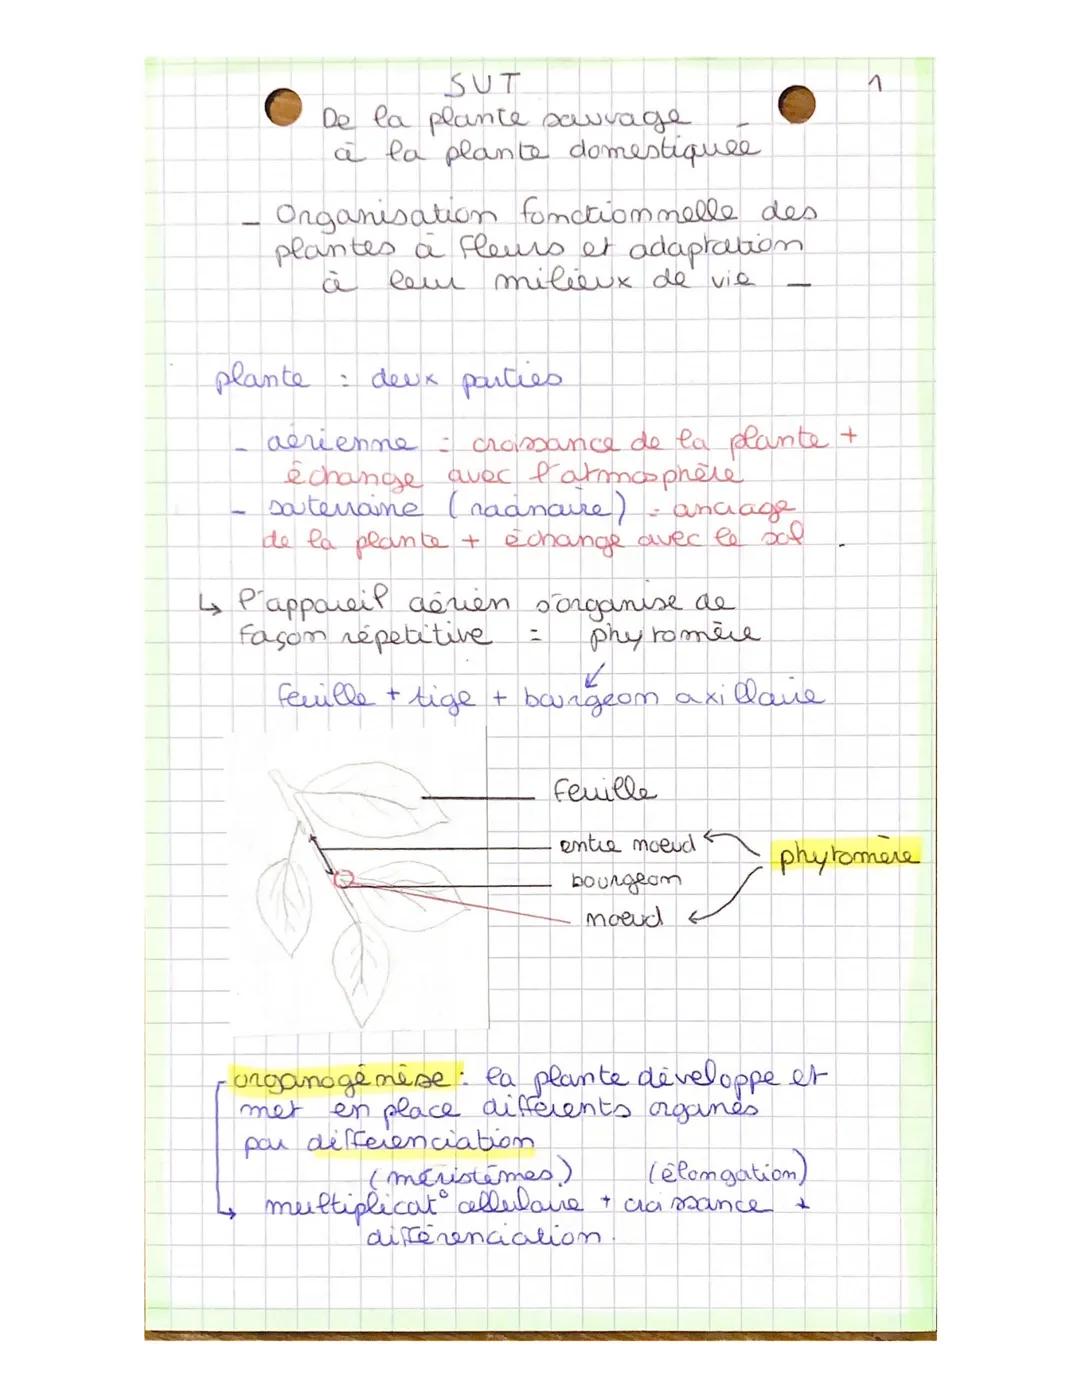 SVT
1
De la plante sauvage
à la plante domestiquée
- Organisation fonctionnelle des
plantes à fleurs et adaptation
à leur milieux de vie -
plante : deux parties
- aérienne = croissance de la plante +
échange avec l'atmosphère
- souterraine (racinaire) = ancrage
de la plante + échange avec le sol.
↳ l'appareil aérien s'organise de
façon répétitive = phytomère
feuille + tige + bourgeon axillaire
feuille
entre noeud
phytomère
bourgeon
noeud
organogénèse : la plante développe et
met en place différents organes
par différenciation
(méristèmes) (élongation)
↳ multiplicat° cellulaire + croissance +
différenciation.